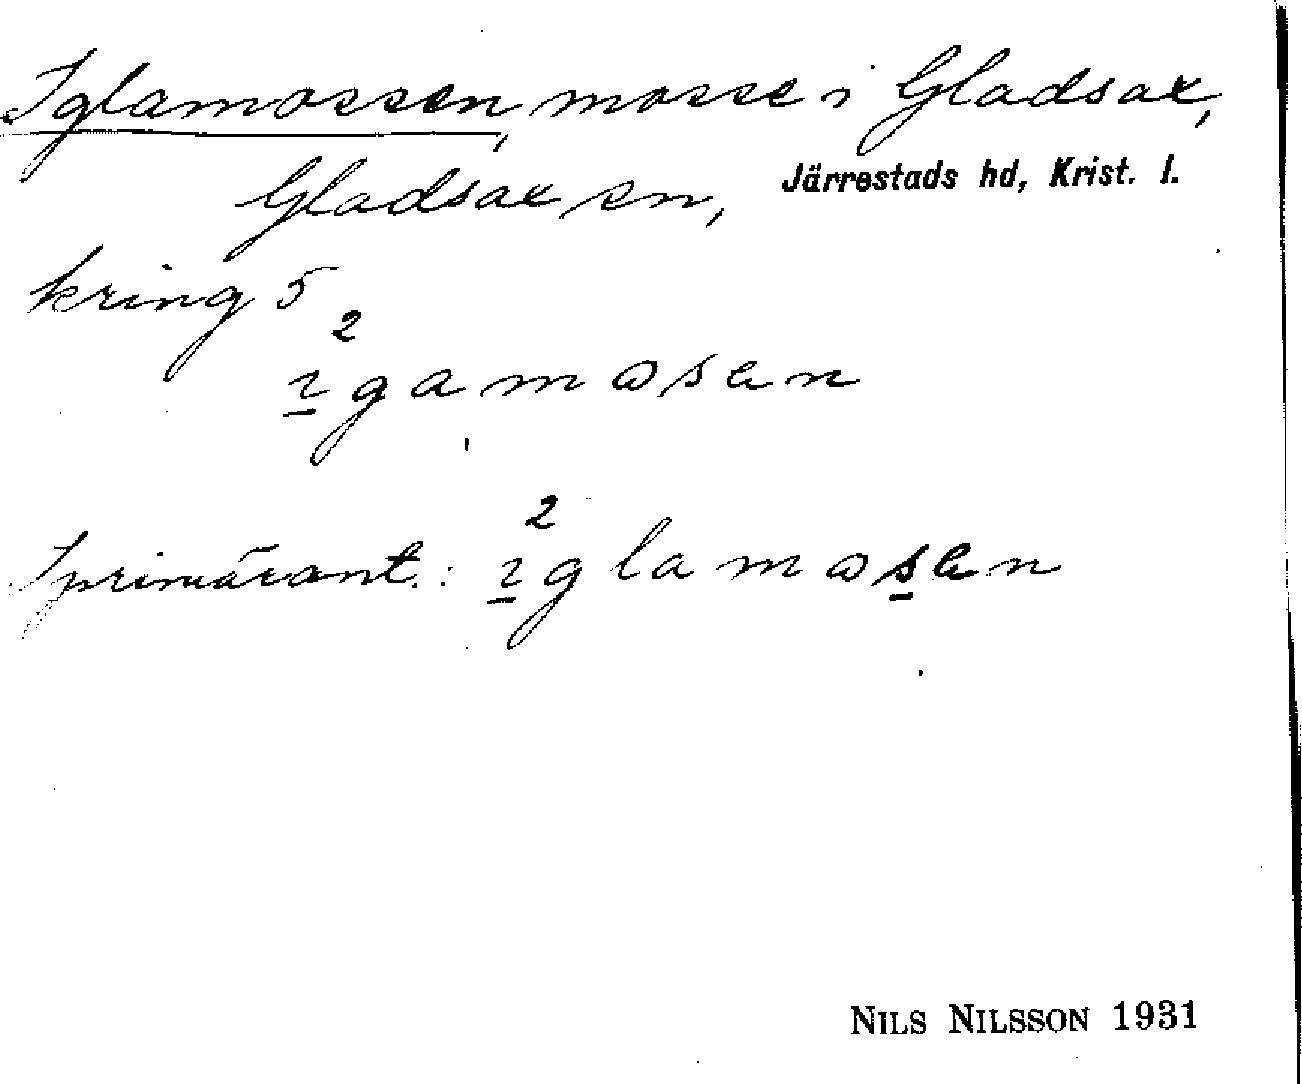 Iglamossen, mosse i Gladsax,
Gladsax sn, Järrestads hd, Krist. l.
kring 5
2
ıgamosen
I primärant.: 2
ıglamosen
NILS NILSSON 1931